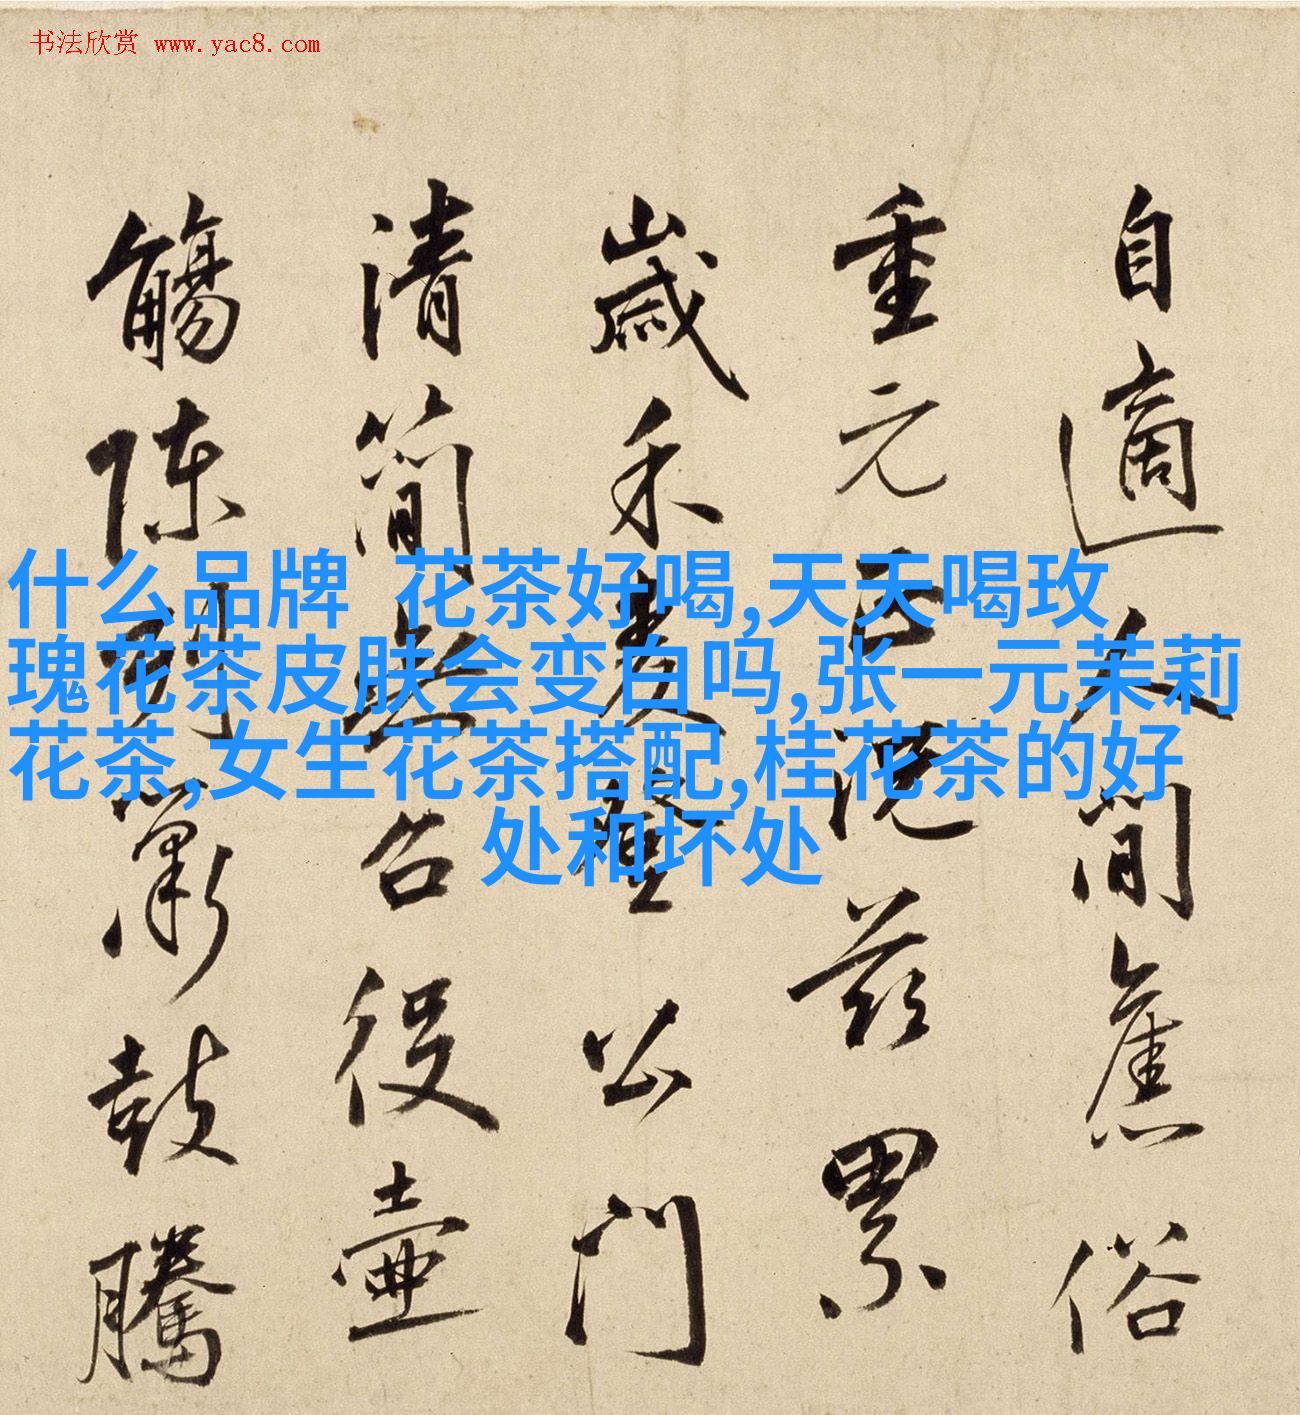 书法欣赏 www.yac8.com
什么品牌 花茶好喝,天天喝玫
瑰花茶皮肤会变白吗,张一元茉莉
花茶,女生花茶搭配,桂花茶的好
处和坏处
自適人間舊俗
重元況茲累
歲禾麦登公門
清簡無召役壺
觴陳列簫鼓騰